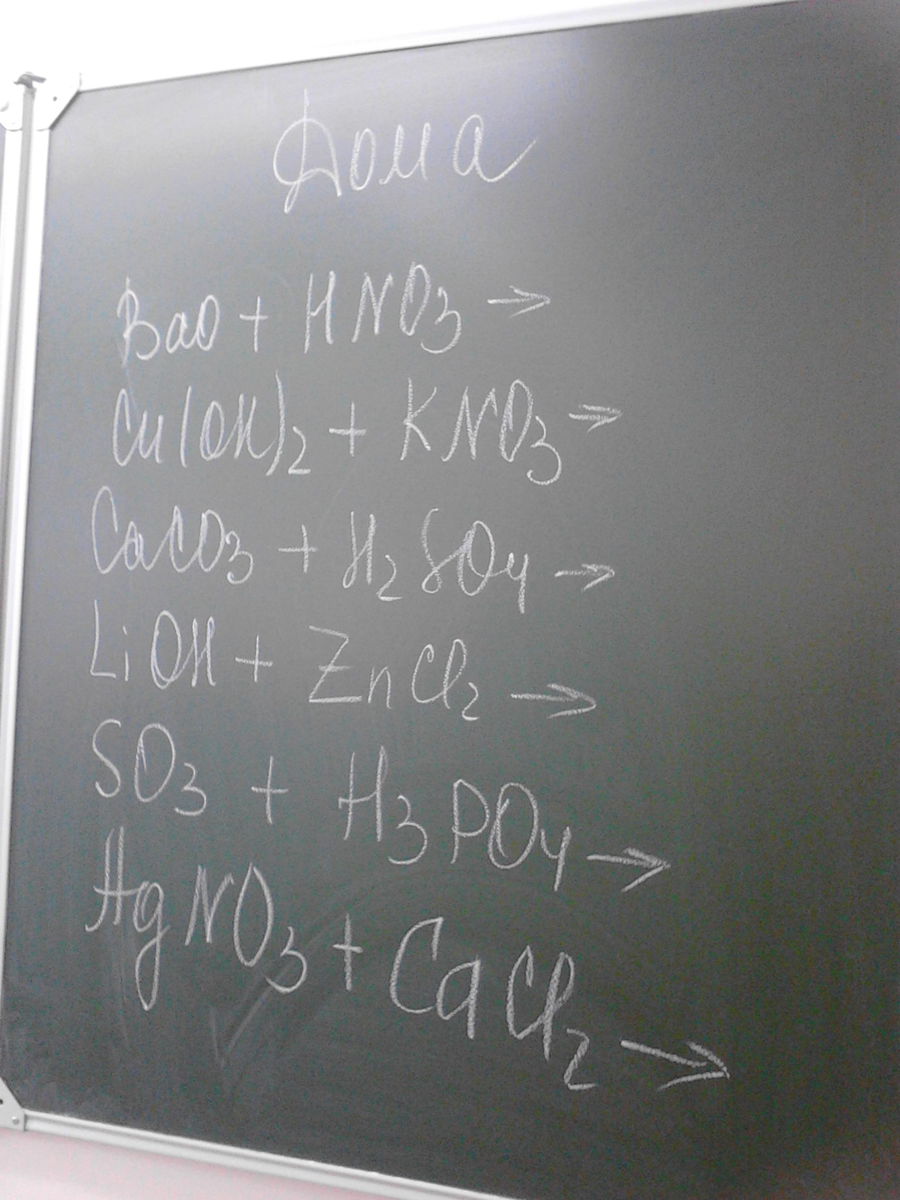 Дома
BaO + HNO3 →
Cu(OH)2 + KNO3 →
CaCO3 + H2SO4 →
LiOH + ZnCl2 →
SO3 + H3PO4 →
HgNO3 + CaCl2 →